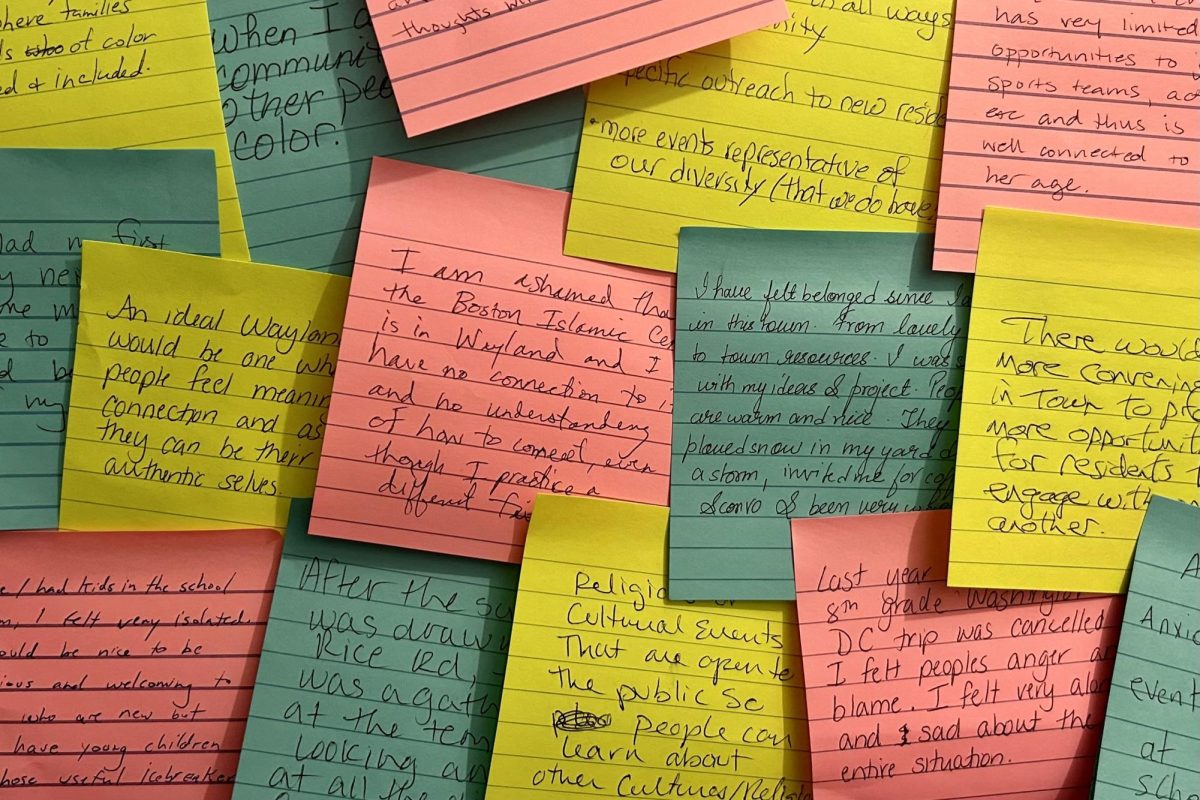 where families
of color
ed & included.
When I a
communi
other peo
color.
thoughts
all ways
nity
pecific outreach to new resid
• more events representative of
our diversity (that we do have,
has very limited
opportunities to
sports teams, ac
etc and thus is
well connected to
her age.
had my first
y ne
me m
e to
d b
my
An ideal Waylan
would be one wh
people feel meanin
connection and as
they can be their
authentic selves.
I am ashamed tha
the Boston Islamic Ce
is in Wayland and I
have no connection to i
and no understanding
of how to connect, even
though I practice a
different
I have felt belonged since I
in this town. From lovely
to town resources. I was s
with my ideas & project. Peop
are warm and nice. They
plowed snow in my yard
a storm, invited me for co
& convo & been very
There would
more convening
in Town to p
more opportunit
for residents t
engage with
another.
e I had kids in the school
m, I felt very isolated.
ould be nice to be
ious and welcoming to
who are new but
have young children
hose useful icebreaker
After the s
was draw
Rice Rd,
was a gath
at the tem
Looking an
at all the
Religio or
Cultural Events
That are open to
the public so
people can
learn about
other Cultures/Relig
Last year
8th grade Washington
DC trip was cancelled
I felt peoples anger a
blame. I felt very alon
and sad about the
entire situation.
A
Anxi
event
at
scho